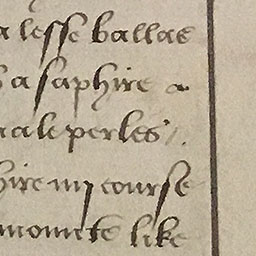 a lesse ballas
a saphire a
ale perles
hire my course
mounte like